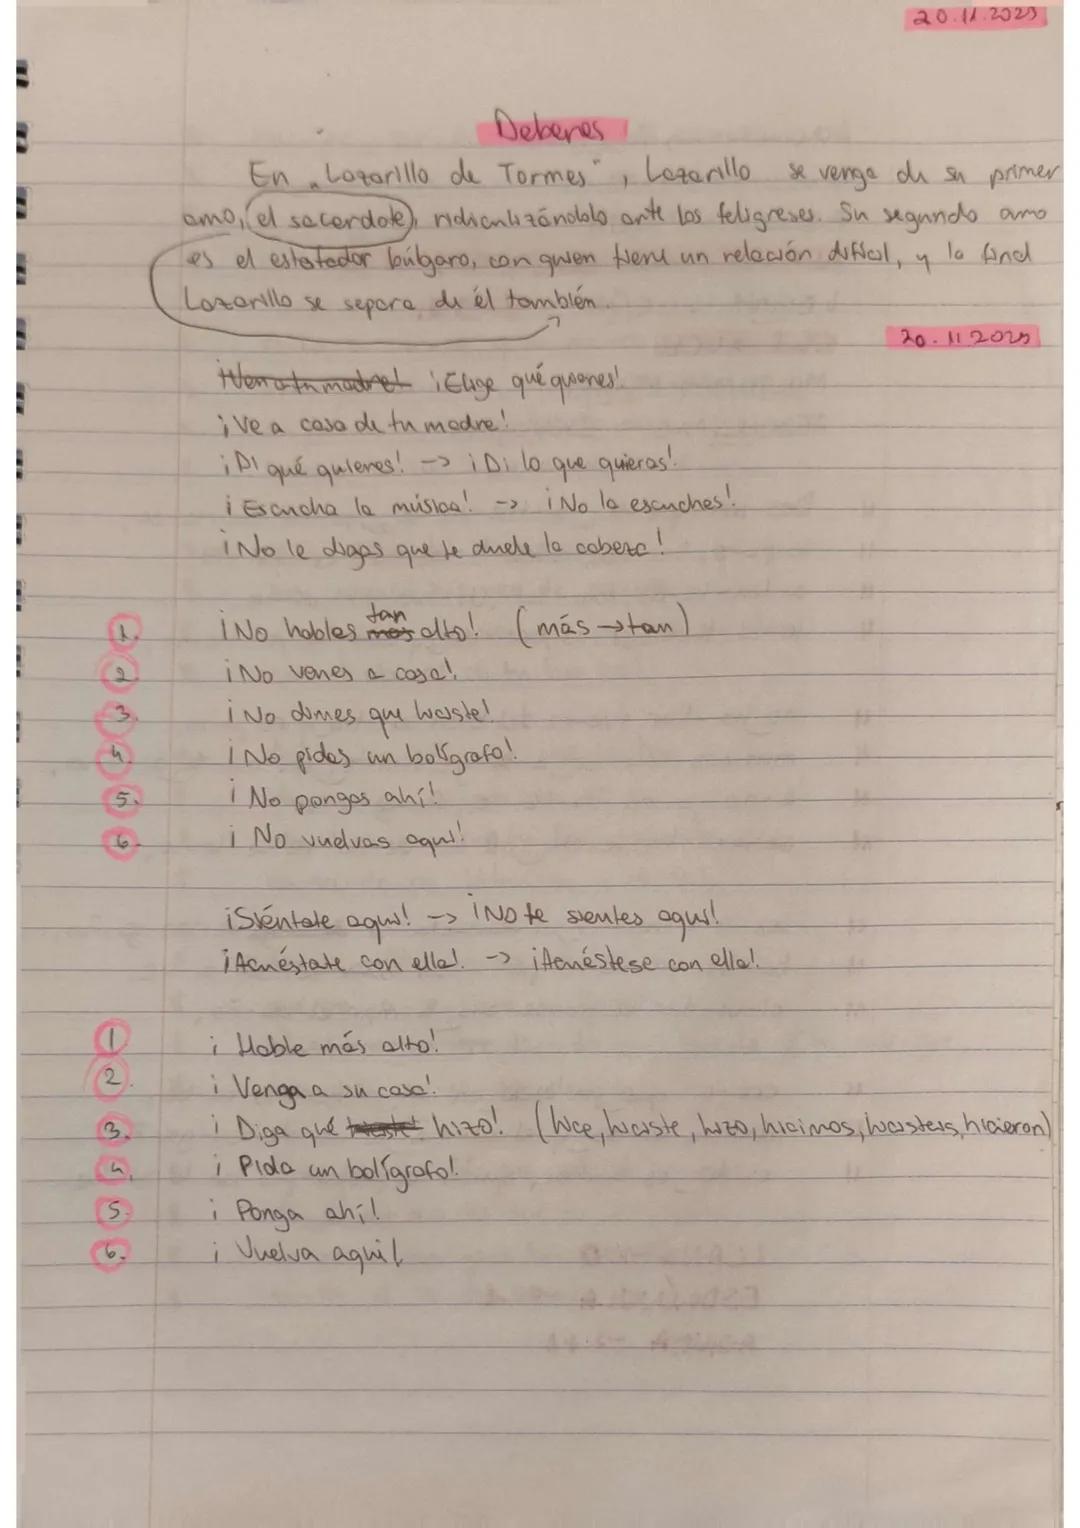 20.11.2025
Deberes
En „Lazarillo de Tormes", Lazarillo se venga de su primer
amo, el sacerdote, ridiculizándolo ante los feligreses. Su segundo amo
es el estafador búlgaro, con quien tiene un relación difícil, y la final
Lazarillo se separa de él también.
20.11.2025
¡Elige qué quieres!
¡Ve a casa de tu madre!
¡Di qué quieres! -> ¡Di lo que quieras!
¡Escucha la música! -> ¡No la escuches!
¡No le digas que te duele la cabeza!
1. ¡No hables tan alto! (más → tan)
2 ¡No venes a casa!
3. ¡No dimes que hiciste!
4. ¡No pidas un bolígrafo!
5. ¡No pongas ahí!
6. ¡No vuelvas aquí!
¡Siéntate aquí! -> ¡No te sientes aquí!
¡Acuéstate con ella! -> ¡Acuéstese con ella!
1 ¡Hable más alto!
2. ¡Venga a su casa!
3. ¡Diga qué hizo! (hice, hiciste, hizo, hicimos, hicisteis, hicieron)
4. ¡Pida un bolígrafo!
5. ¡Ponga ahí!
6. ¡Vuelva aquí!